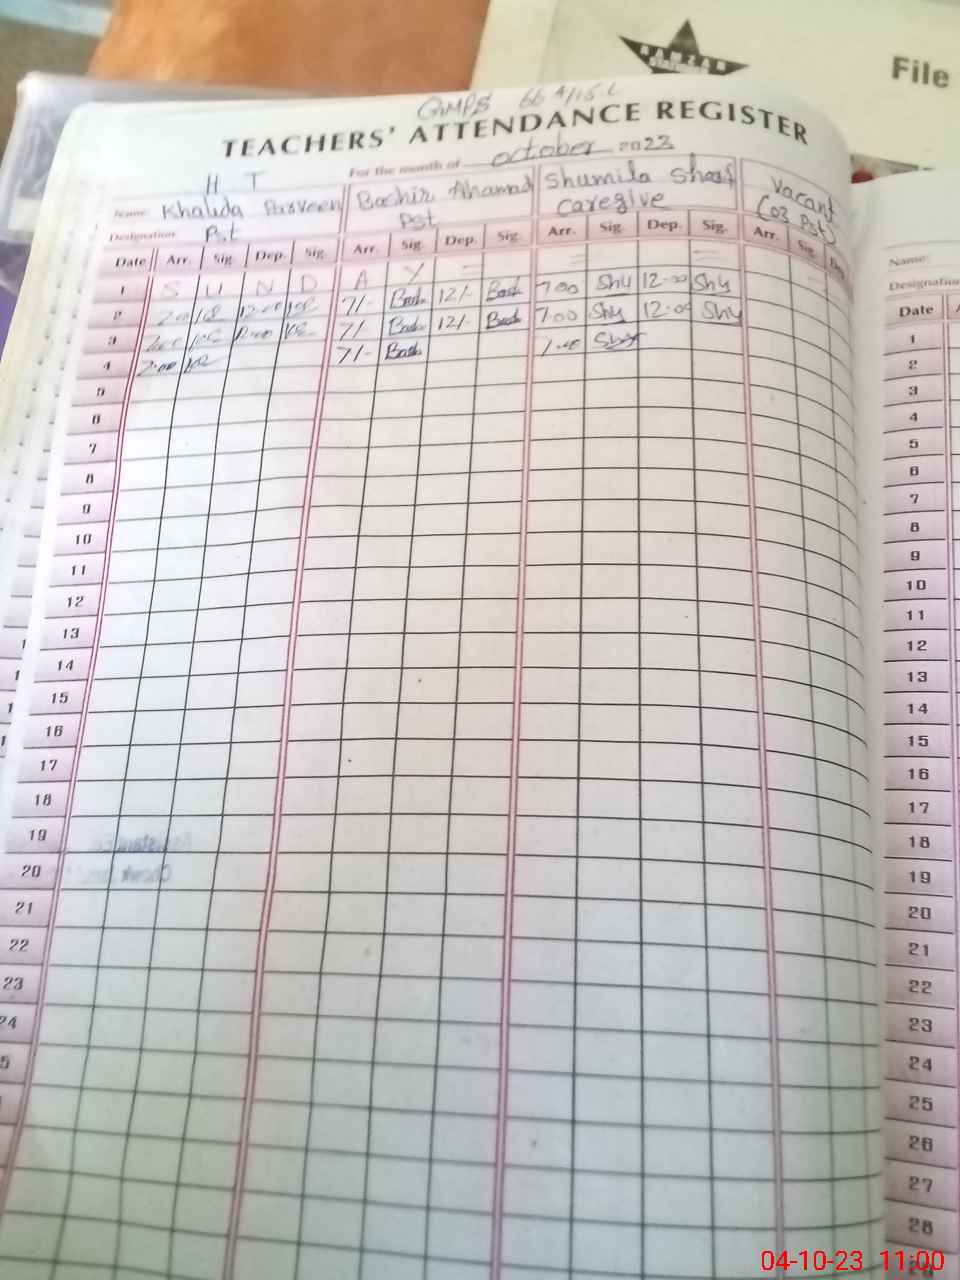 RAMZAN
File
GMPS 66 4/15.L
TEACHERS' ATTENDANCE REGISTER
For the month of october 2023
H T
Name: Khalida Parveen Bashir Ahamad Shumila Sharif Vacant
Designation: Pst Pst caregive (03 Pst)
Date Arr. Sig. Dep. Sig. Arr. Sig. Dep. Sig. Arr. Sig. Dep. Sig. Arr. Sig. Dep.
1 S U N D A Y
2 7.00 12.00 7/- Bash 12/- Bash 7.00 Shu 12.00 Shu
3 7.00 12.00 7/- Bash 12/- Bash 7.00 Shu 12.00 Shu
4 7.00 7/- Bash 7.00 Shu
5
6
7
8
9
10
11
12
13
14
15
16
17
18
19
20
21
22
23
24
Name:
Designation
Date A
1
2
3
4
5
6
7
8
9
10
11
12
13
14
15
16
17
18
19
20
21
22
23
24
25
26
27
28
04-10-23 11:00